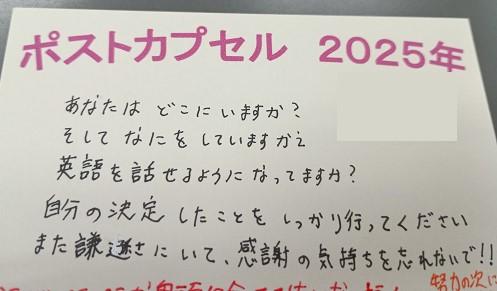 ポストカプセル 2025年
あなたは どこにいますか?
そして なにを していますかえ
英語を話せるようになってますか?
自分の決定したことを しっかり行ってください
また謙遜さにいて、感謝の気持ちを忘れないで!!
努力の次に